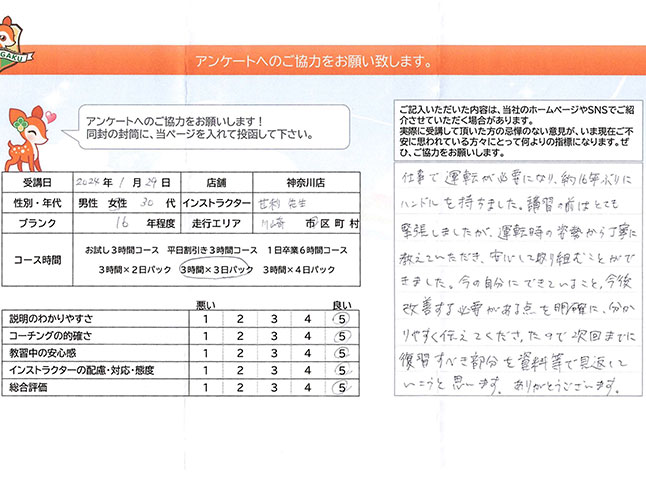 GAKU
アンケートへのご協力をお願い致します。
アンケートへのご協力をお願いします！
同封の封筒に、当ページを入れて投函して下さい。
ご記入いただいた内容は、当社のホームページやSNSでご紹
介させていただく場合があります。
実際に受講して頂いた方の忌憚のない意見が、いま現在ご不
安に思われている方々にとって何よりの指標になります。ぜ
ひ、ご協力をお願いします。
受講日 2024年 1月29日 店舗 神奈川店
性別・年代 男性 女性 30代 インストラクター 先生
ブランク 16年程度 走行エリア 川崎 市区町村
コース時間
お試し3時間コース 平日割引き3時間コース 1日卒業6時間コース
3時間×2日パック 3時間×3日パック 3時間×4日パック
悪い 良い
説明のわかりやすさ 1 2 3 4 5
コーチングの的確さ 1 2 3 4 5
教習中の安心感 1 2 3 4 5
インストラクターの配慮・対応・態度 1 2 3 4 5
総合評価 1 2 3 4 5
仕事で運転が必要になり、約16年ぶりに
ハンドルを持ちました。講習の前はとても
緊張しましたが、運転時の姿勢から丁寧に
教えていただき、安心して取り組むことがで
きました。今の自分にできていること、今後
改善する必要がある点を明確に、分か
りやすく伝えてくださったので次回までに
復習すべき部分を資料等で見返して
いこうと思います。ありがとうございます。